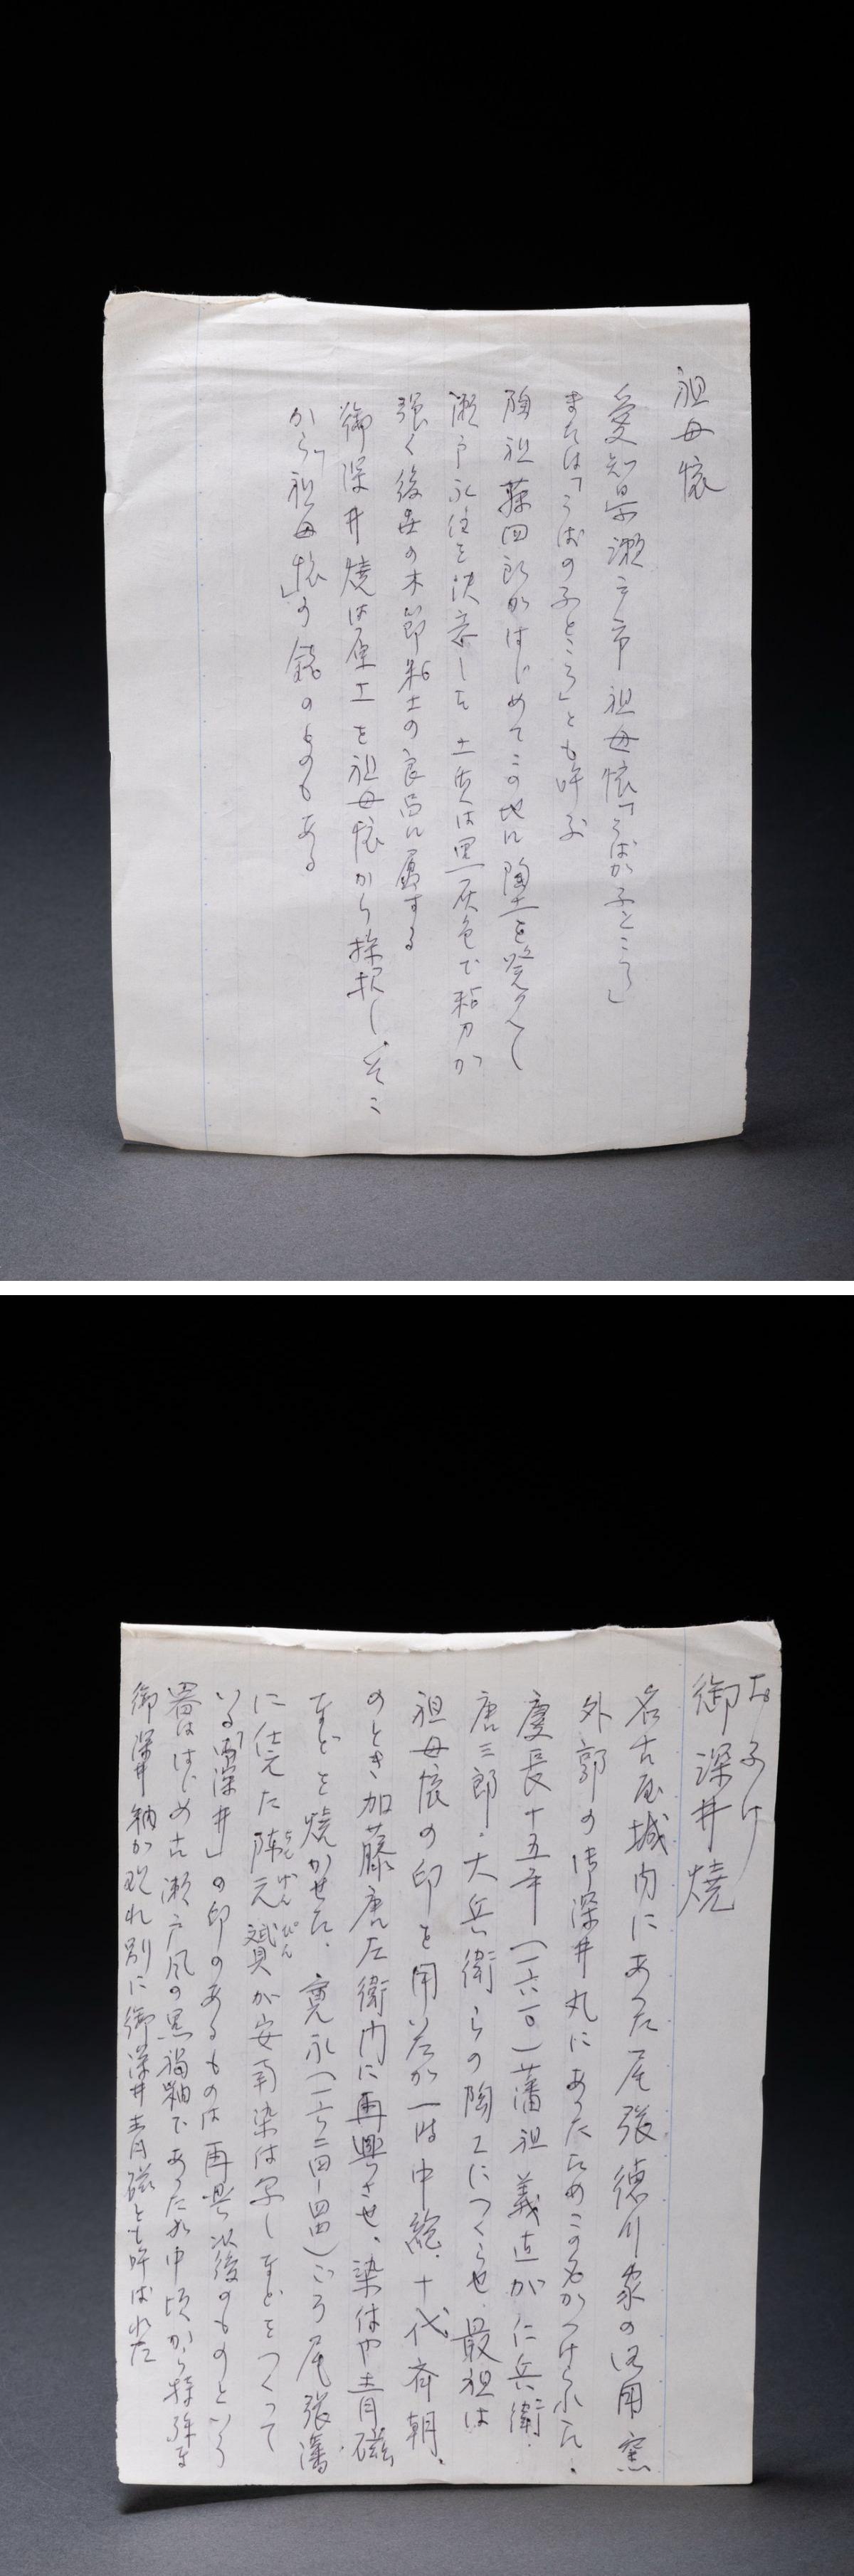 祖母懐
愛知県瀬戸市祖母懐「そばが子ところ」
または「うばの子ところ」とも呼ぶ
陶祖藤四郎がはじめてこの地に陶土を発見し
瀬戸永住を決意した 土質は黒灰色で粘力が
強く後世の木節粘土の良品に属する
御深井焼は原土を祖母懐から採択し、そこ
から「祖母懐」の銘のものもある
おふけ
御深井焼
名古屋城内にあった尾張徳川家の御用窯
外郭の御深井丸にあったためこの名がつけられた.
慶長十五年(一六一〇)藩祖義直が仁兵衛.
唐三郎.大兵衛らの陶工につくらせ.最祖は
祖母懐の印を用いたが一時中絶.十代斉朝.
のとき加藤唐左衛門に再興させ、染付や青磁
などを焼かせた.寛永(一六二四-四四)ごろ尾張藩
に仕えた陳元贇がちんげんぴん安南染付写しなどをつくって
いる「深井」の印のあるものは再興以後のものという
器ははじめ古瀬戸風の黒褐釉であったが中頃から特殊な
御深井釉が現れ別に御深井青磁とも呼ばれた